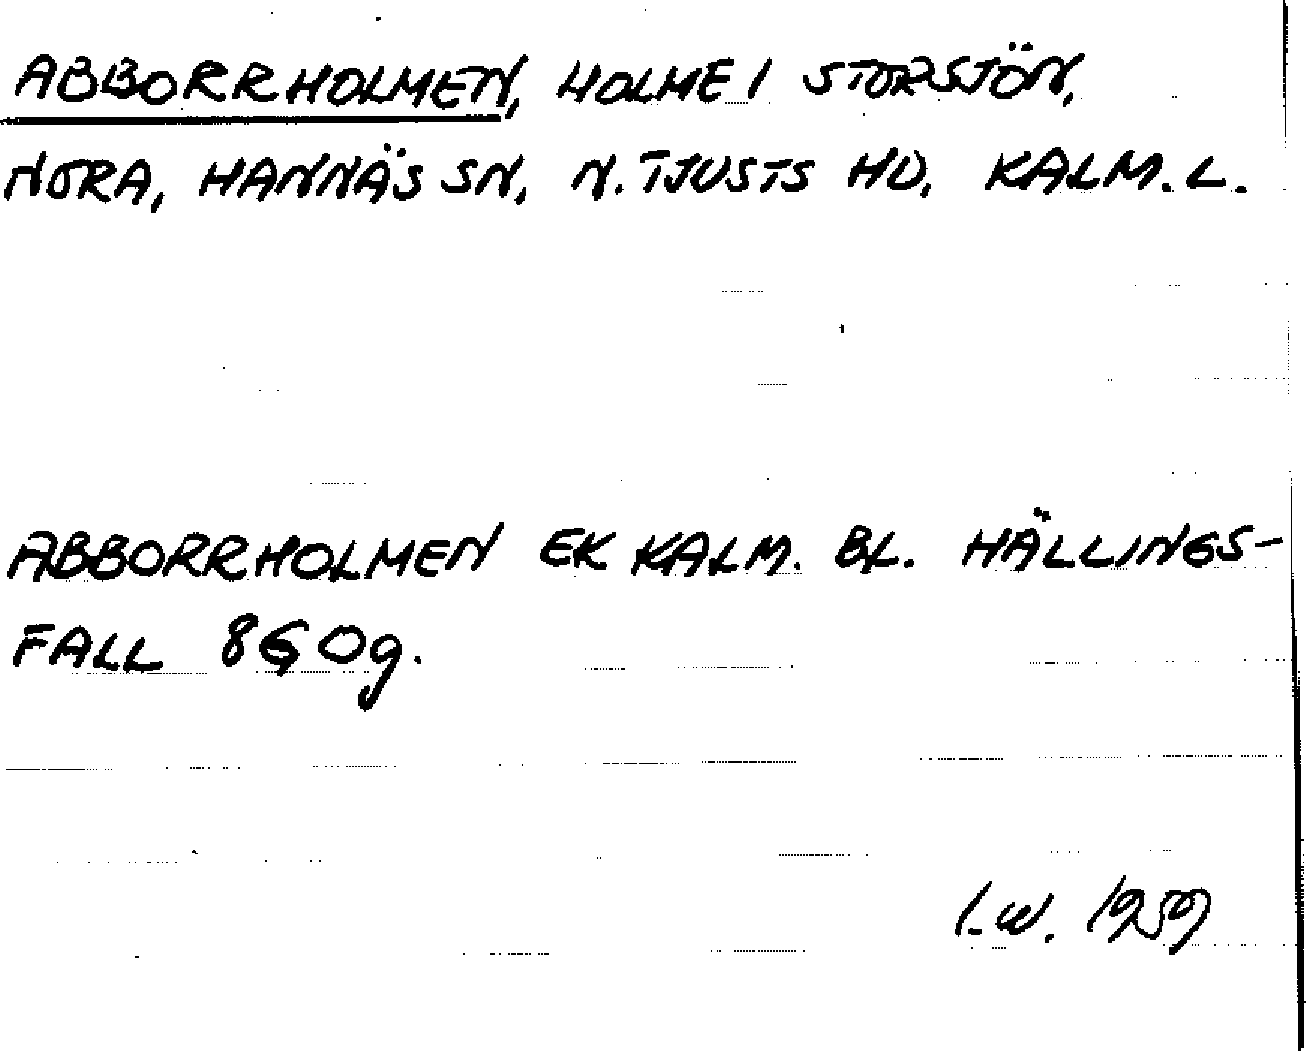 ABBORRHOLMEN, HOLME I STORSJÖN,
NORA, HANNÄS SN, N. TJUSTS HD, KALM. L.
ABBORRHOLMEN EK KALM. BL. HÄLLINGS-
FALL 8G0g.
I.W. 1959